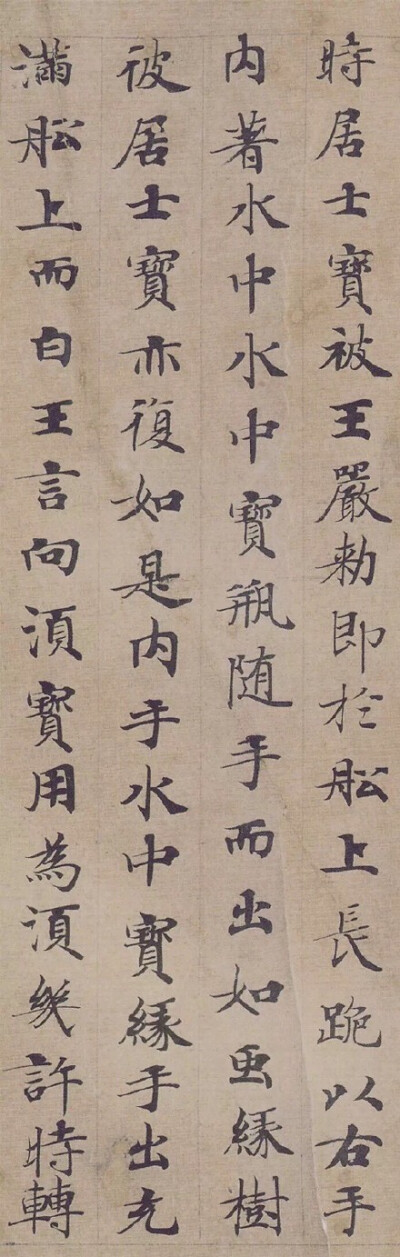 時居士寶被王嚴勅即於舩上長跪以右手
内著水中水中寶瓶随手而出如虫緣樹
彼居士寶亦復如是内手水中寶緣手出充
滿舩上而白王言向湏寶用為湏幾許時轉